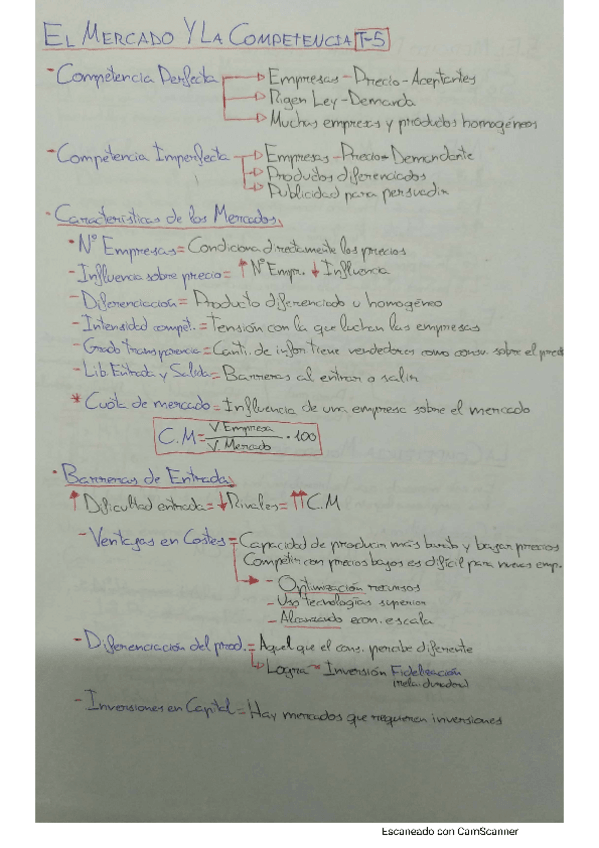 EL MERCADO Y LA COMPETENCIA T-5
- Competencia Perfecta → Empresas - Precio - Aceptantes
→ Rigen Ley - Demanda
→ Muchas empresas y productos homogéneos
- Competencia Imperfecta → Empresas - Precio - Demandante
→ Productos diferenciados
→ Publicidad para persuadir
· Características de los Mercados
· Nº Empresas = Condiciona directamente los precios
- Influencia sobre precio = ↑ Nº Empr. ↓ Influencia
- Diferenciación = Producto diferenciado u homogéneo
- Intensidad compet. = Tensión con la que luchan las empresas
- Grado transparencia = Canti. de infor tiene vendedores como consu. sobre el prod
- Lib. Entrada y Salida = Barreras al entrar o salir
* Cuota de mercado = Influencia de una empresa sobre el mercado
C.M = V Empresa / V. Mercado · 100
· Barreras de Entrada
↑ Dificultad entrada = ↓ Rivales = ↑↑ C.M
- Ventajas en Costes = Capacidad de producir más barato y bajar precios
Competir con precios bajos es difícil para nuevas emp.
→ - Optimización recursos
- Uso tecnologías superior
- Alcanzando econ. escala
- Diferenciación del prod. = Aquel que el cons. percibe diferente
→ Logra = Inversión Fidelización
(rela. duradera)
- Inversiones en Capital = Hay mercados que requieren inversiones
Escaneado con CamScanner